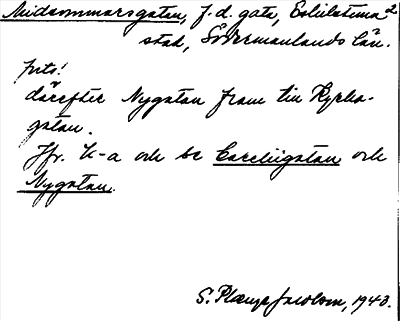 Midsommarsgatan, f. d. gata, Eskilstuna
stad, Södermanlands län.
därefter Nygatan fram till Kyrko-
gatan.
Jfr. K-a och se Careliigatan och
Nygatan.
S. Jacobson, 1943.